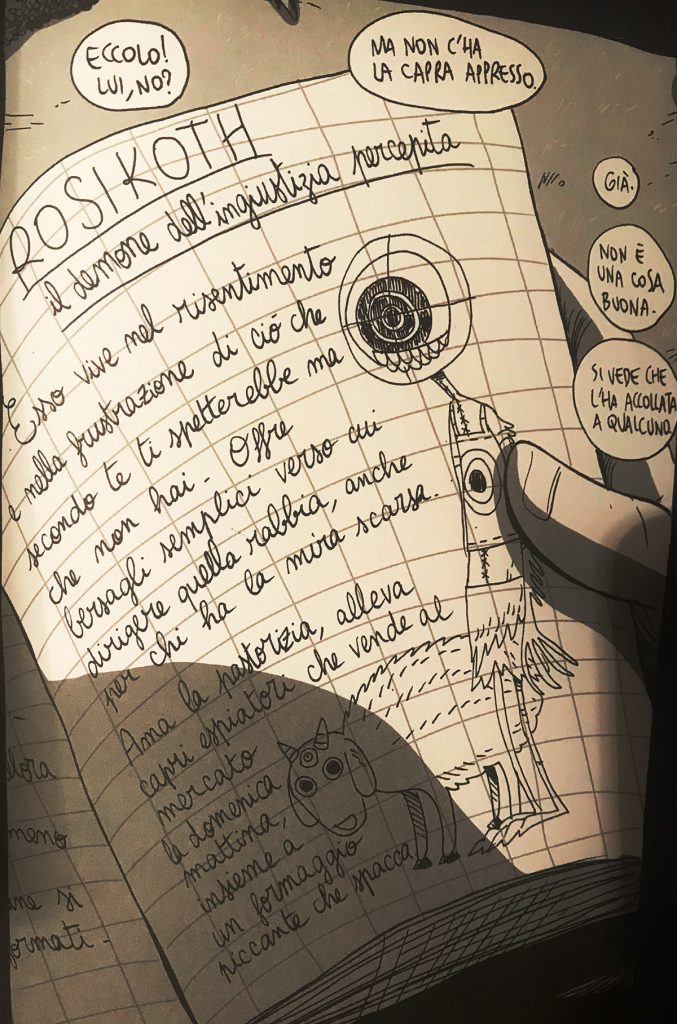 ECCOLO!
LUI, NO?
MA NON C'HA
LA CAPRA APPRESSO.
GIÀ.
NON È
UNA COSA
BUONA.
SI VEDE CHE
L'HA ACCOLLATA
A QUALCUNO.
ROSIKOTH
il demone dell'ingiustizia percepita
Esso vive nel risentimento
e nella frustrazione di ciò che
secondo te ti spetterebbe ma
che non hai. Offre
bersagli semplici verso cui
dirigere quella rabbia, anche
per chi ha la mira scarsa.
Ama la pastorizia, alleva
capri espiatori che vende al
mercato
la domenica
mattina,
insieme a
un formaggio
piccante che spacca